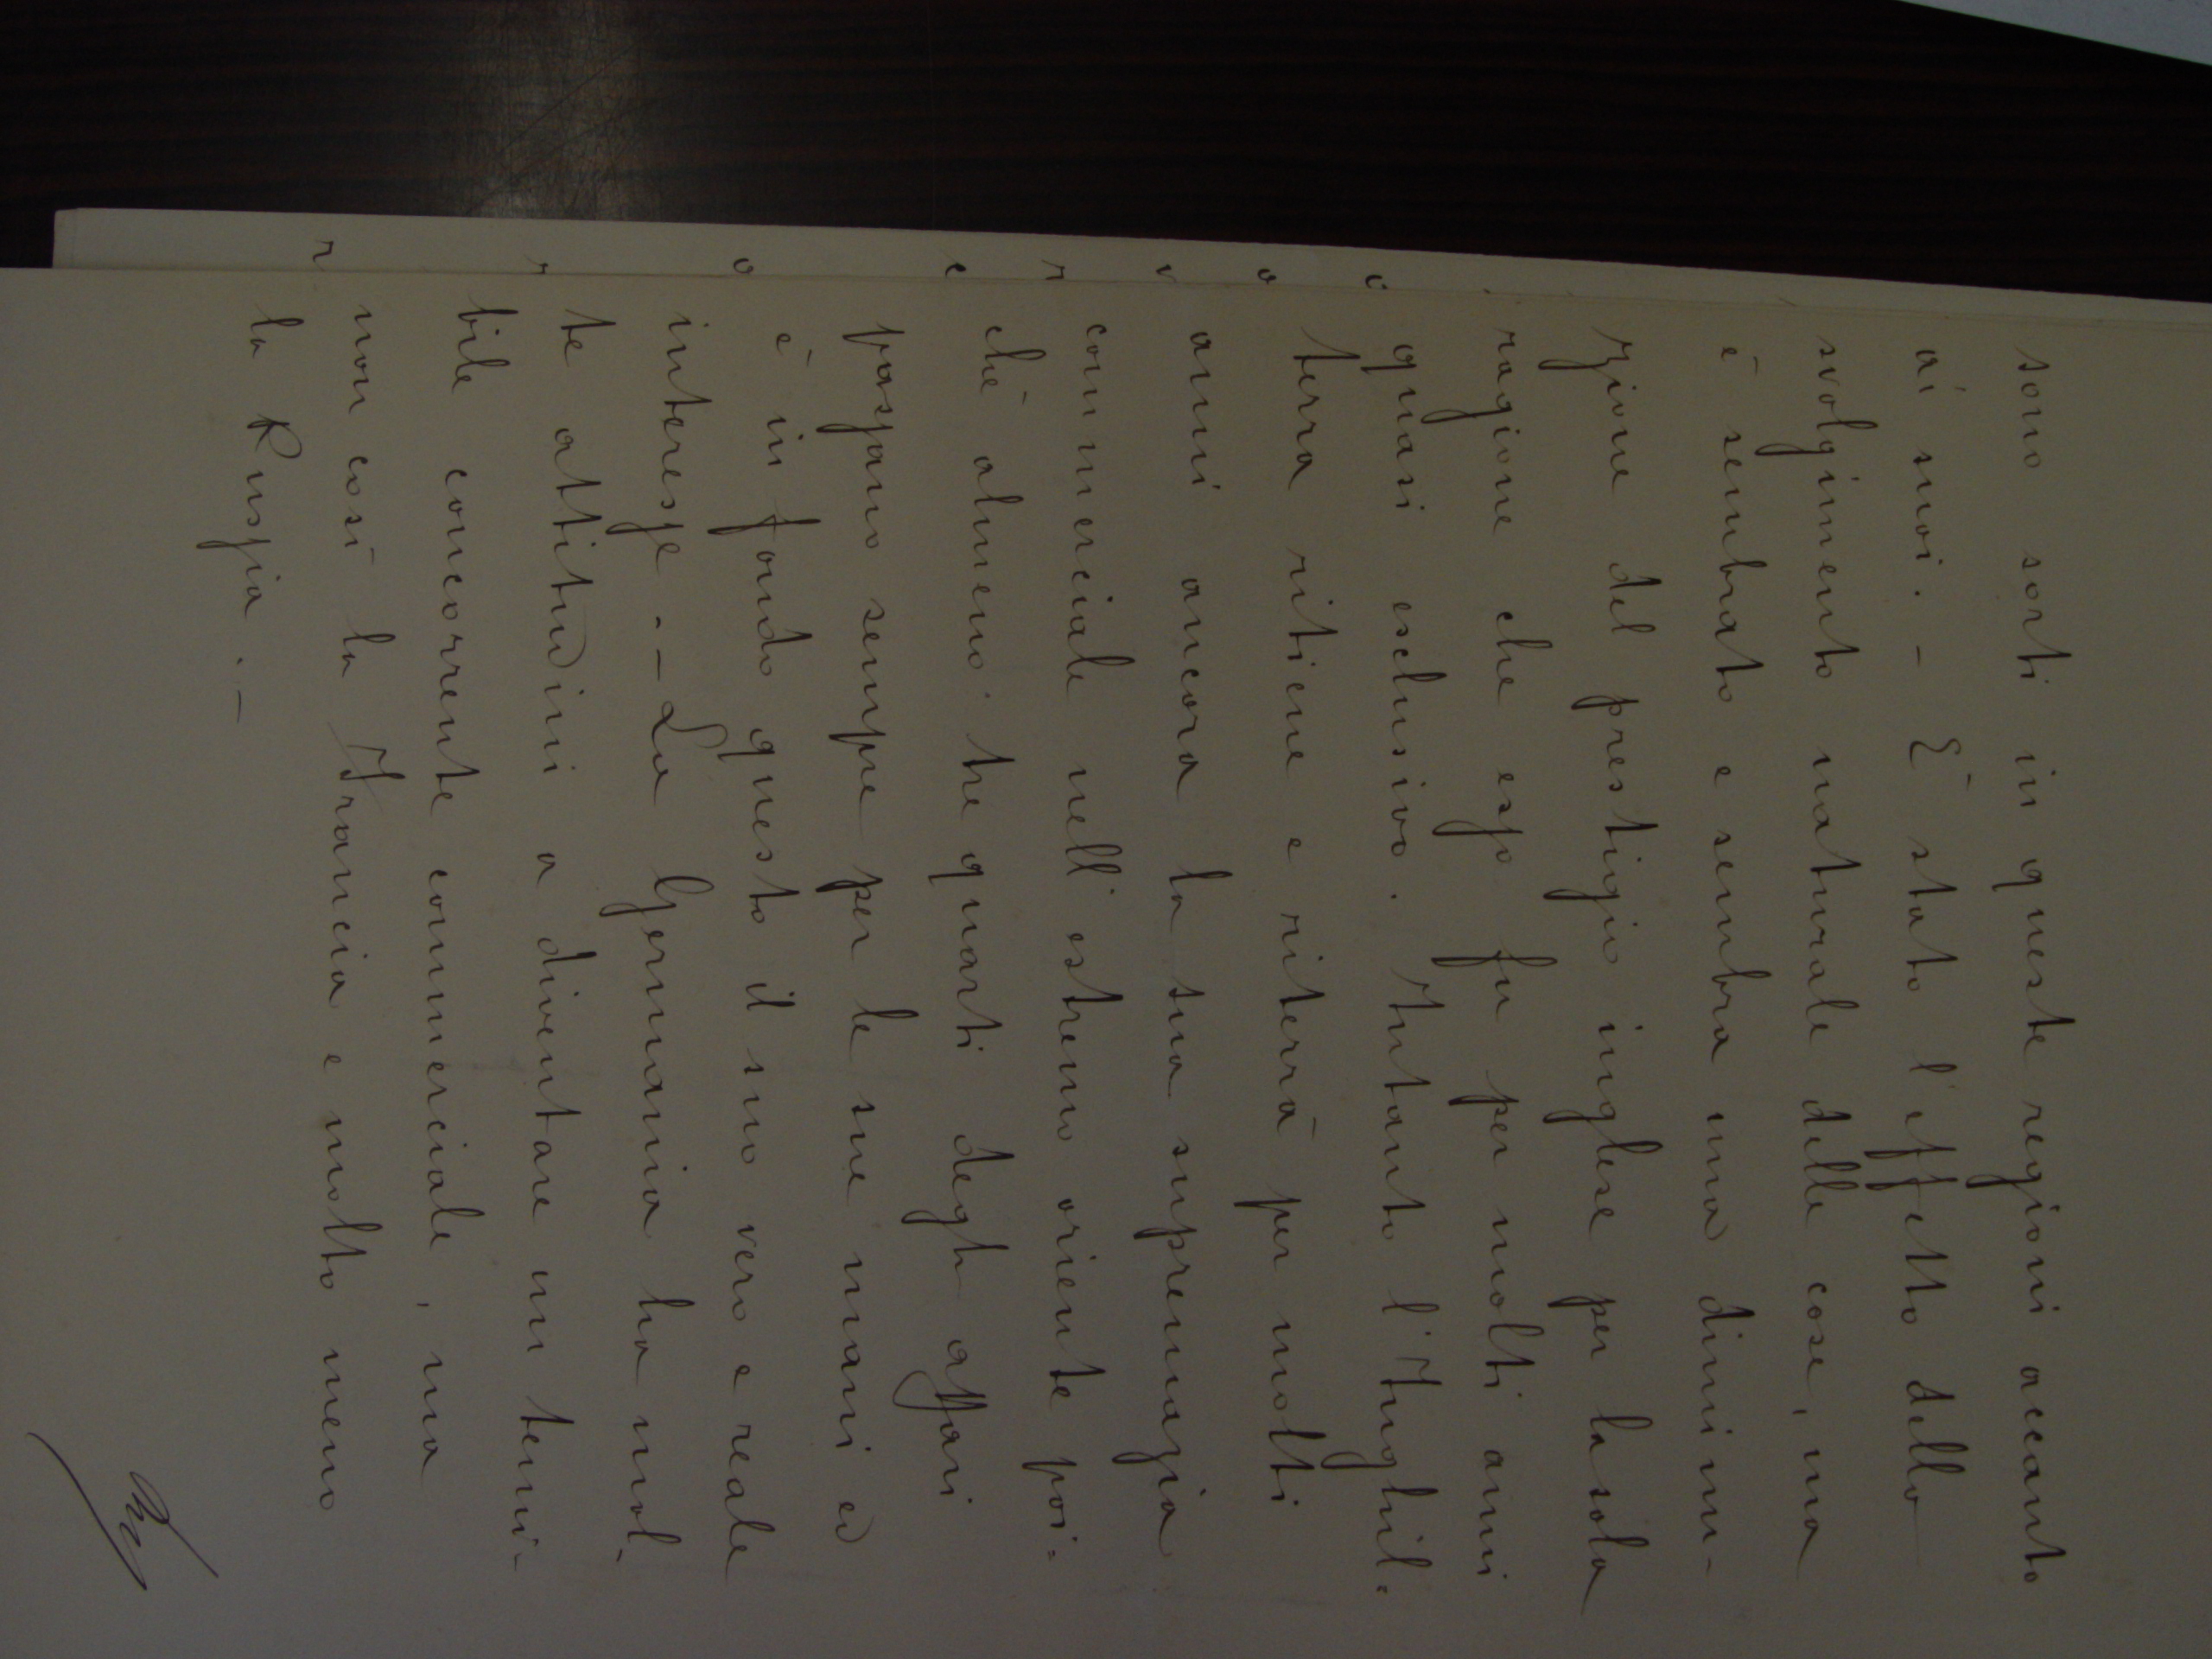 sono sorti in queste regioni accanto
ai suoi. - È stato l'effetto dello
svolgimento naturale delle cose, ma
è sembrato e sembra una diminu-
zione del prestigio inglese per la sola
ragione che esso fu per molti anni
quasi esclusivo. Intanto l'Inghil=
terra ritiene e riterrà per molti
anni ancora la sua supremazia
commerciale nell'estremo oriente poi=
chè almeno tre quarti degli affari
passano sempre per le sue mani ed
è in fondo questo il suo vero e reale
interesse. - La Germania ha mol-
te attitudini a diventare un temi-
bile concorrente commerciale, ma
non così la Francia e molto meno
la Russia. -